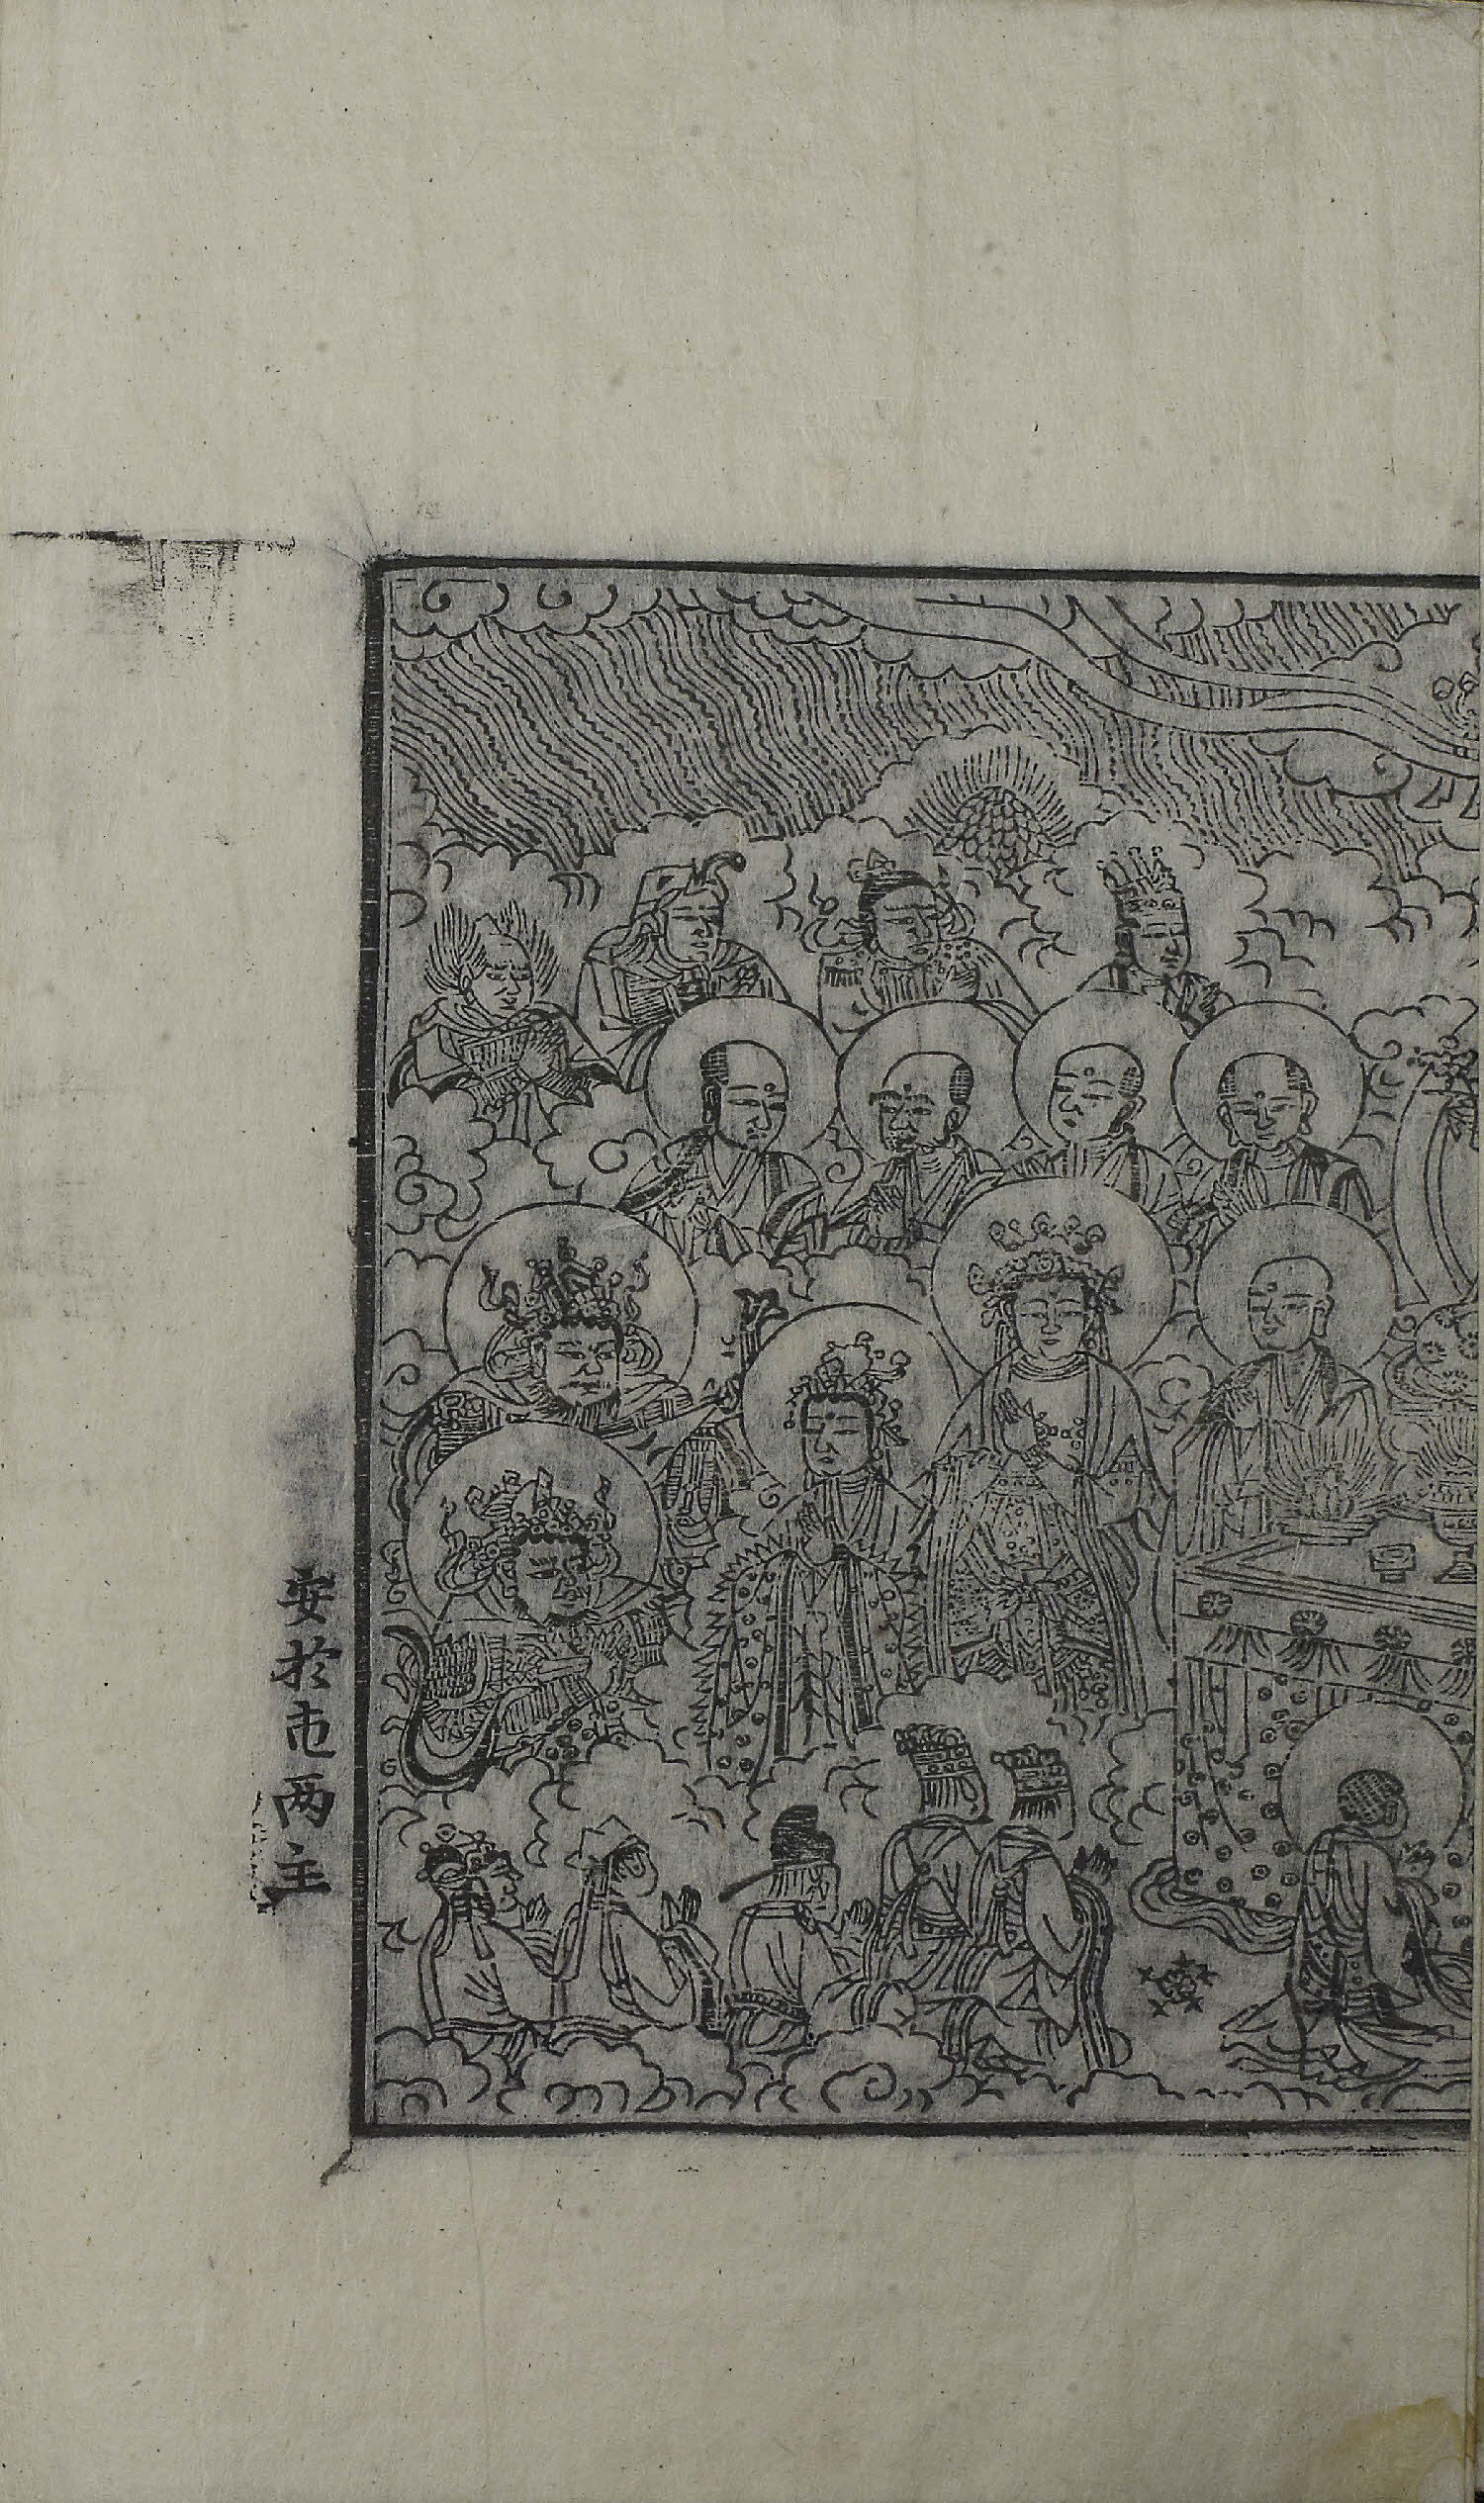 安於市两主